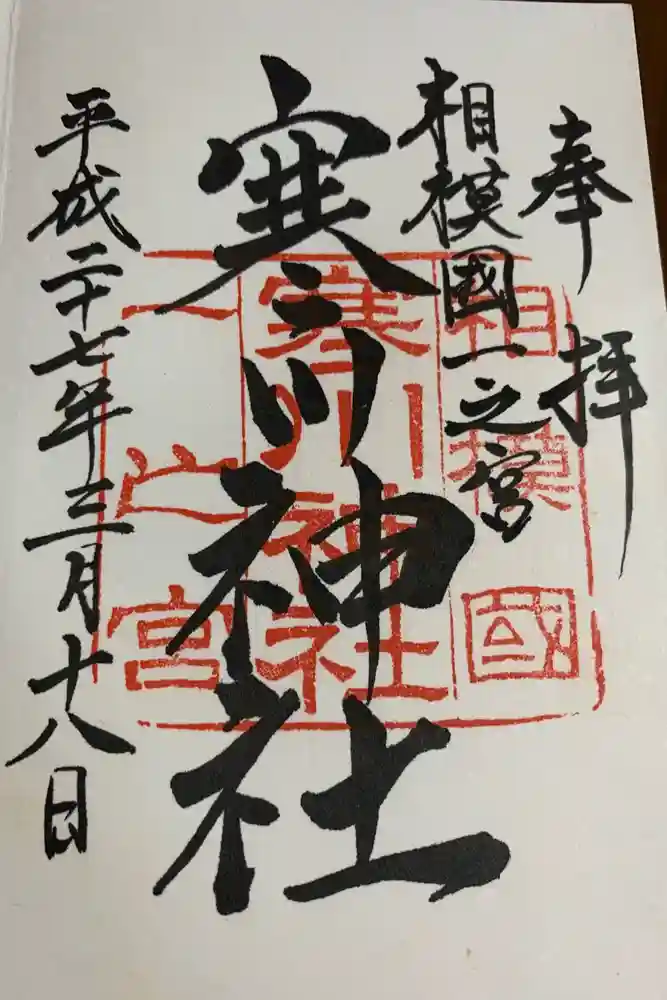 奉拝
相模國一之宮
寒川神社
平成二十七年三月十八日
相模國
寒川神社
一之宮